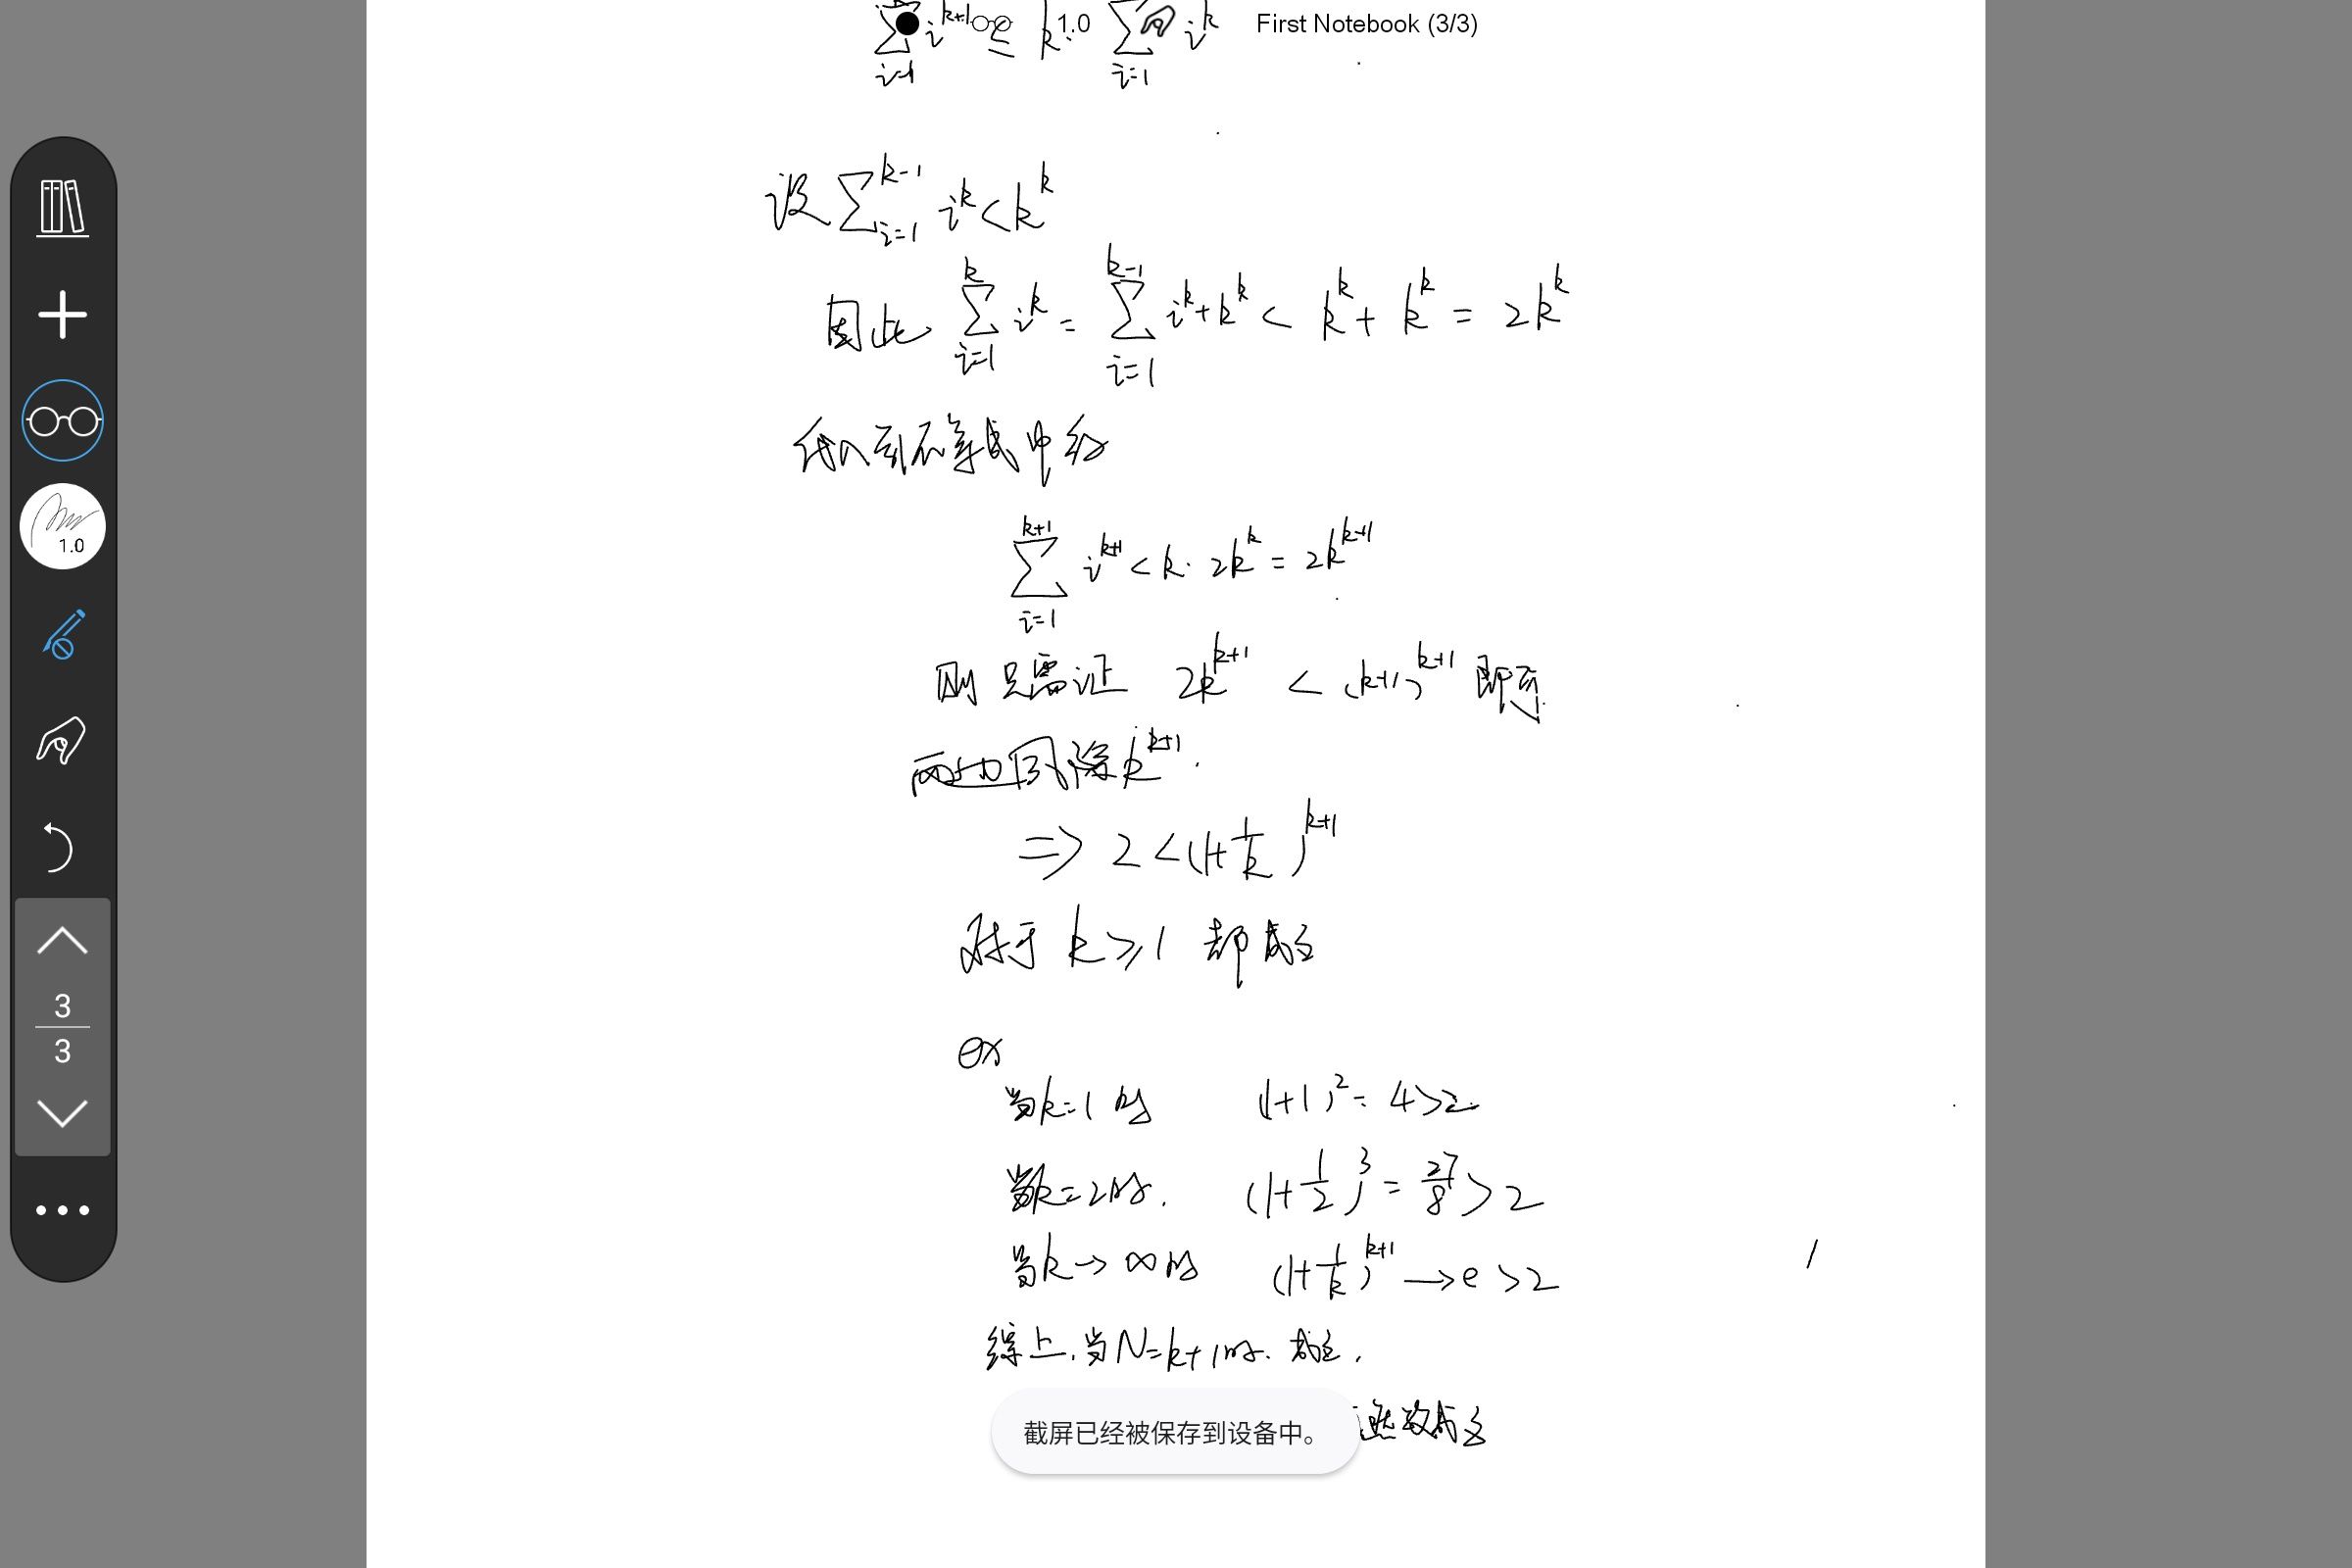 First Notebook (3/3)
1.0
∑_{i=1} i^{k+1} ≤ k · ∑_{i=1} i^k
设 ∑_{i=1}^{k-1} i^k < k^k
因此 ∑_{i=1}^{k} i^k = ∑_{i=1}^{k-1} i^k + k^k < k^k + k^k = 2k^k
代入到不等式中得
∑_{i=1}^{k+1} i^{k+1} < k · 2k^k = 2k^{k+1}
1.0
则只需证 2k^{k+1} < (k+1)^{k+1} 即可
两边同除 k^{k+1}.
=> 2 < (1+1/k)^{k+1}
对于 k ≥ 1 都成立
3
3
ex
当k=1时 (1+1)^2 = 4 > 2
当k=2时. (1+1/2)^3 = 27/8 > 2
当k→∞时 (1+1/k)^{k+1} → e > 2
综上, 当N=k+1时. 成立.
截屏已经被保存到设备中。
成立